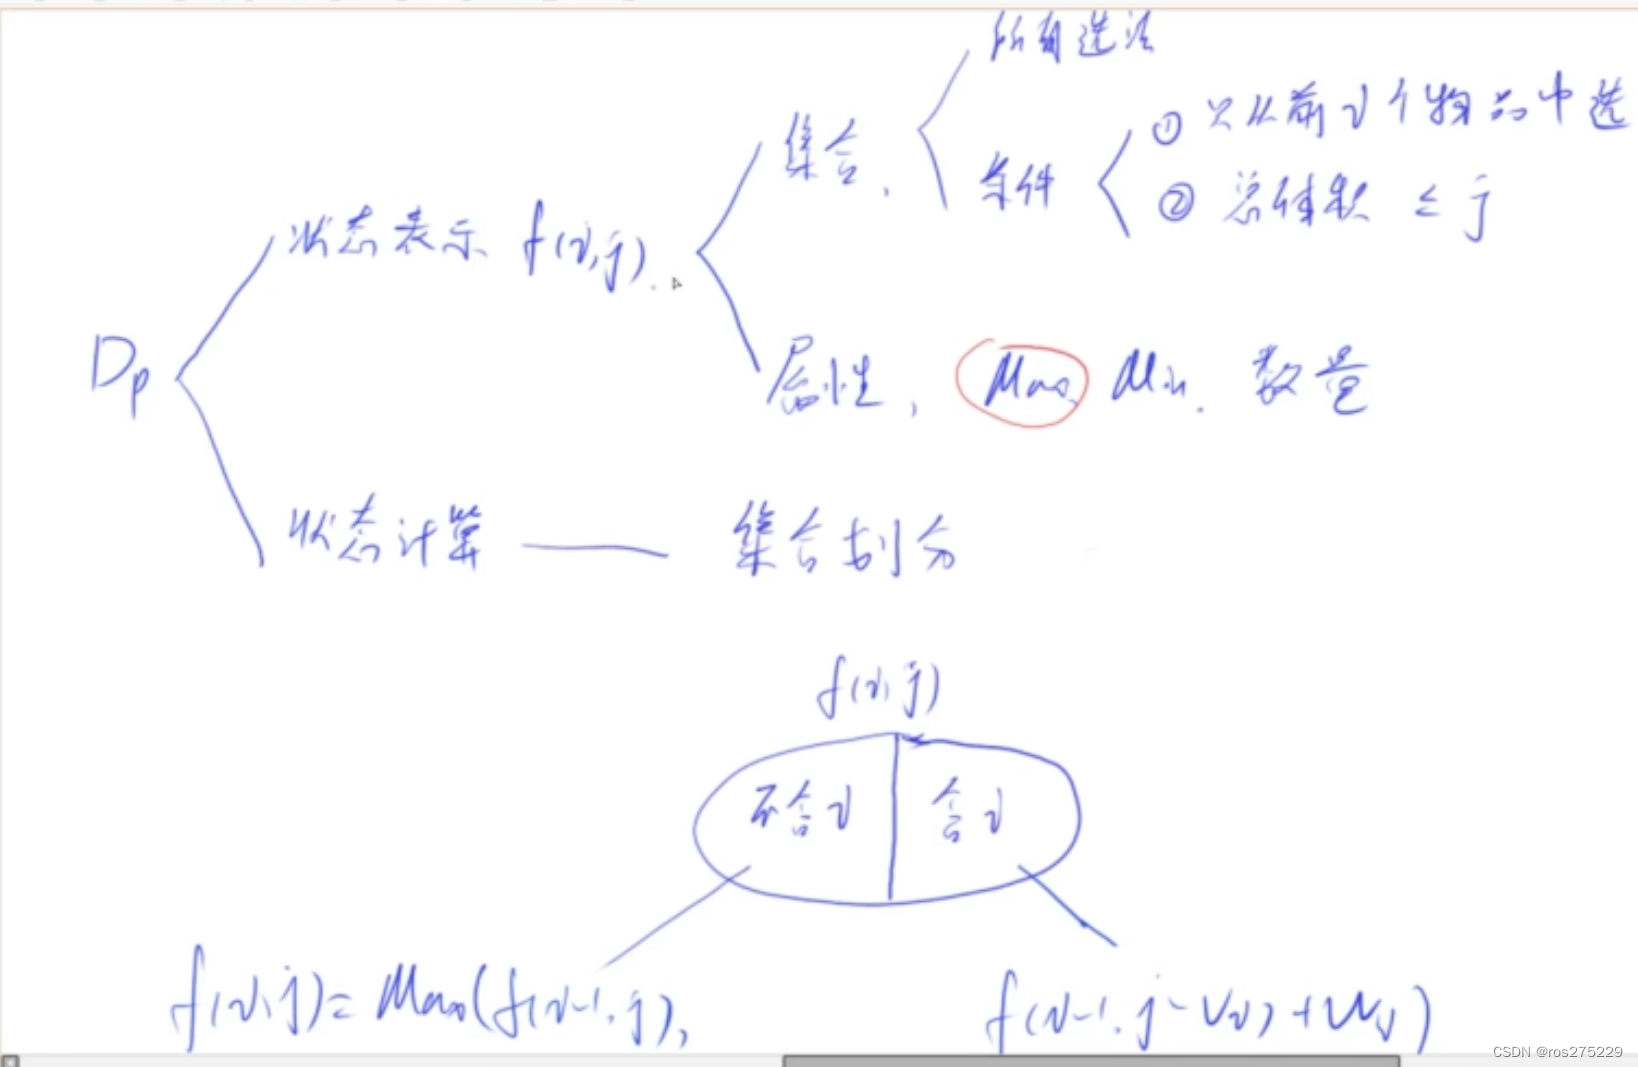 所有选法
集合,
条件
① 只从前i个物品中选
② 总体积 ≤ j
状态表示 f(i,j).
Dp
属性, Max, Min. 数量
状态计算
集合划分
f(i,j)
不含i
含i
f(i,j)= Max(f(i-1,j),
f(i-1, j-vi)+wi)
CSDN @ros275229